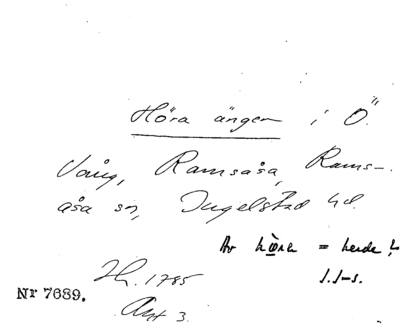 Höra ängen i Ö.
Vång, Ramsåsa, Rams-
åsa sn, Ingelstad hd.
Av hörer = herde!
J.J-s.
Ht. 1785
Nr 7689.
Akt 3.